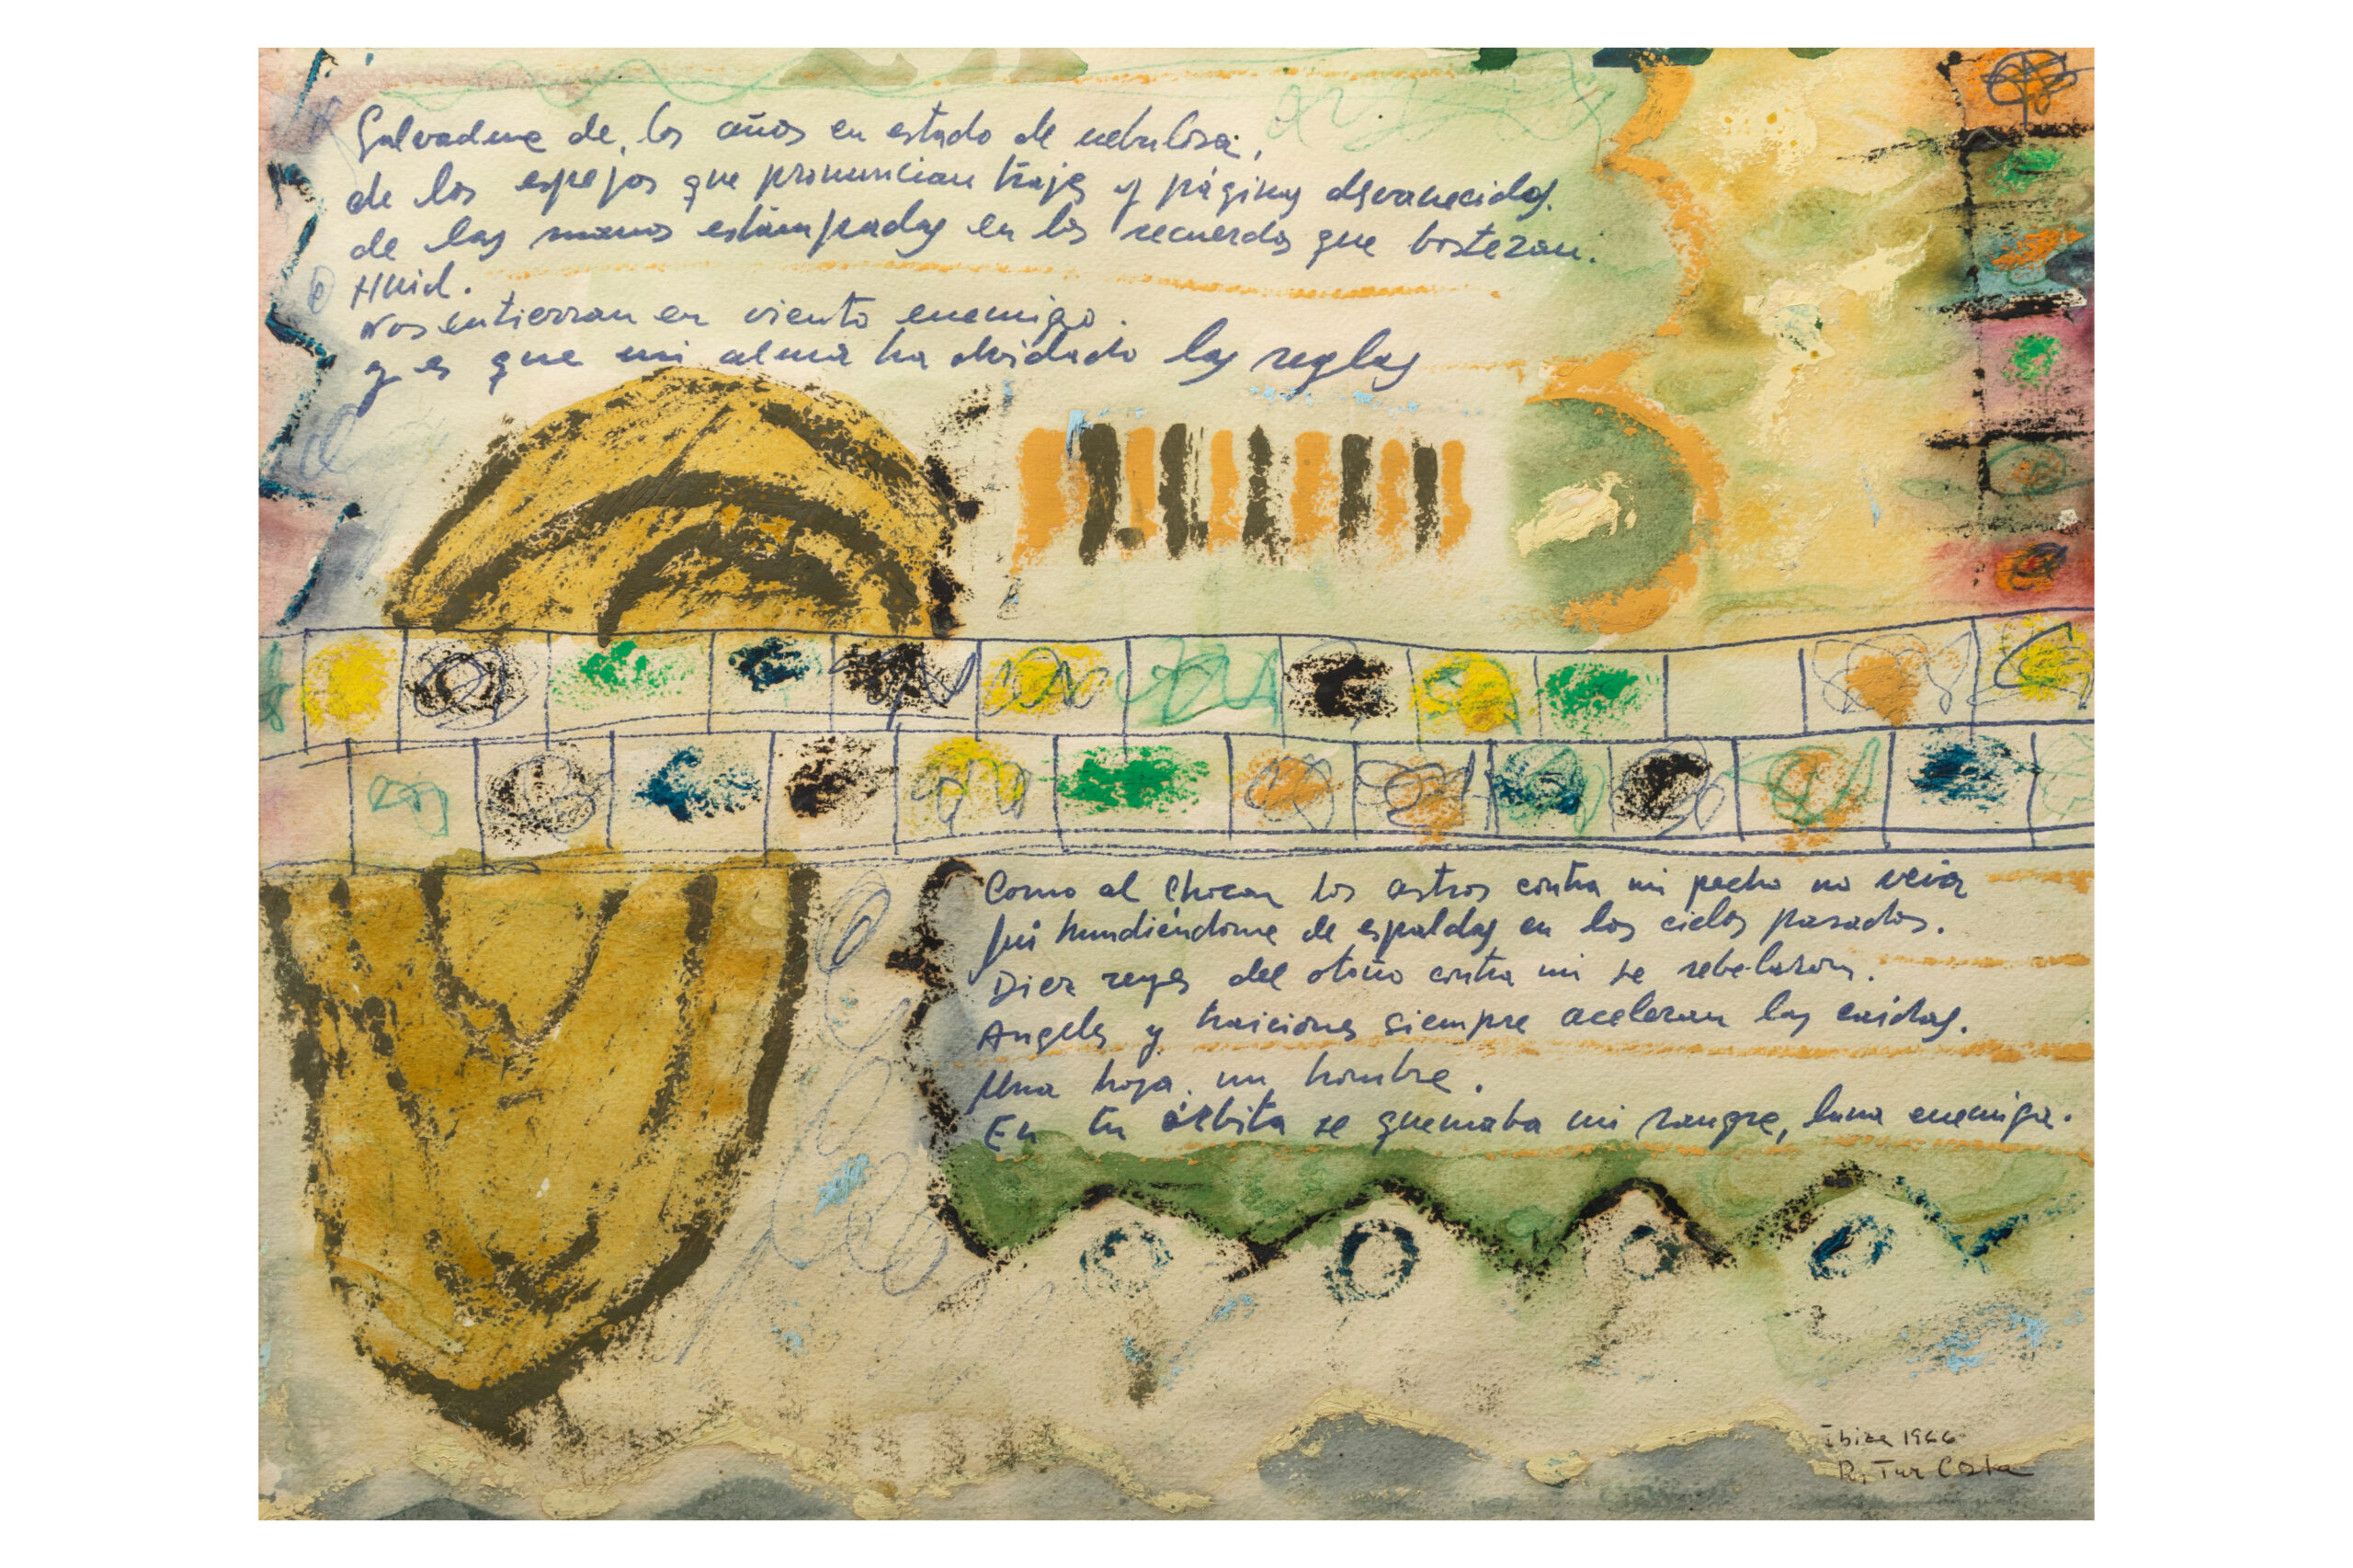 Salvadme de los años en estado de nebulosa,
de los espejos que pronuncian trajes y páginas desvanecidos.
de las manos estampadas en los recuerdos que bostezan.
Huid.
Nos entierran en viento enemigo.
y es que mi alma ha olvidado las reglas
Como al chocar los astros contra mi pecho no veía
fui hundiéndome de espaldas en los cielos pasados.
Diez reyes del otoño contra mi se rebelaron.
Angeles y traiciones siempre aceleran las caídas.
Una hoja, un hombre.
En tu órbita se quemaba mi sangre, luna enemiga.
Ibiza 1966
R. Tur Costa